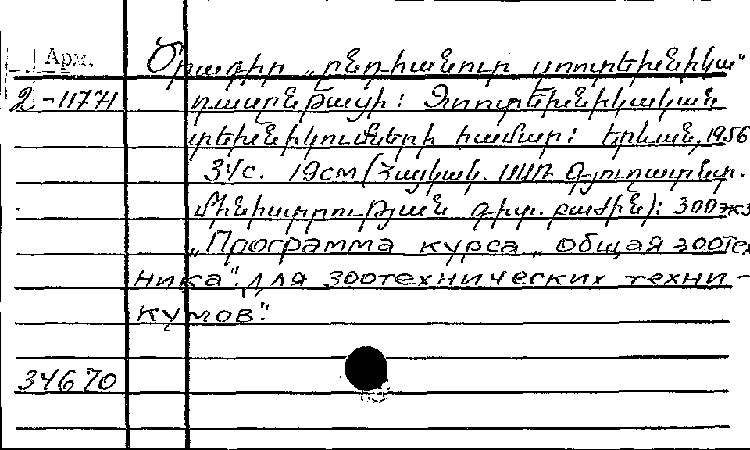 Арм.
Ծրագիր „ընդհանուր զոոտեխնիկա"
2-11771
դասընթացի: Զոոտեխնիկական
տեխնիկումների համար: Երևան, 1956
34с. 19см (Հայկակ. ՍՍՌ Գյուղատնտ.
մինիստրության գիտ. բաժին): 300экз
„Программа курса „общая зоотех
ника". для зоотехнических техни-
кумов".
34670